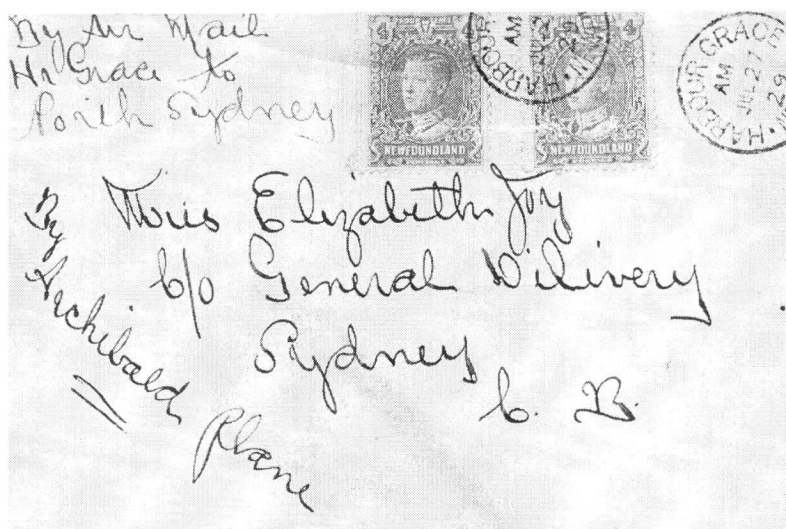 By Air Mail
Hr Grace to
North Sydney
4 4
NEWFOUNDLAND
4 4
NEWFOUNDLAND
HARBOUR GRACE
AM
JUL 2
29
NEWF
HARBOUR GRACE
AM
JUL 27
29
Miss Elizabeth Joy
C/o General Delivery
Sydney
C. B.
By
Archibald
Plane